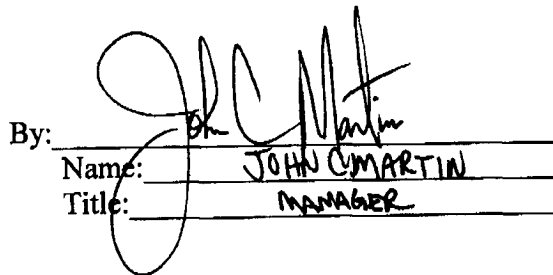 By: John C Martin
Name: JOHN C MARTIN
Title: MANAGER